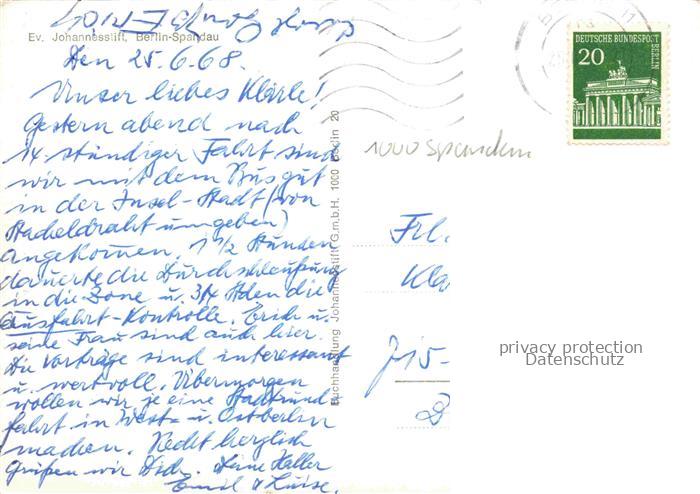 Ev. Johannesstift, Berlin-Spandau
Den 25.6.68.
Unser liebes Klärle!
Gestern abend nach
14 stündiger Fahrt sind
wir mit dem Bus gut
in der Insel-Stadt (von
Stacheldraht umgeben)
angekommen. 1 1/2 Stunden
dauerte die Durchschleusung
in die Zone u. 3/4 Stden die
Ausfahrt-Kontrolle. Erich u.
seine Frau sind auch hier.
Die Vorträge sind interessant
u. wertvoll. Übermorgen
wollen wir je eine Stadtrund
fahrt in West- u. Ostberlin
machen. Recht herzlich
grüßen wir Dich. Deine
Emil u. Luise.
Buchhandlung Johannesstift G.m.b.H. 1000 Berlin 20
DEUTSCHE BUNDESPOST
BERLIN
20
1000 Spenden
Frl.
Kla
715-
D
privacy protection
Datenschutz